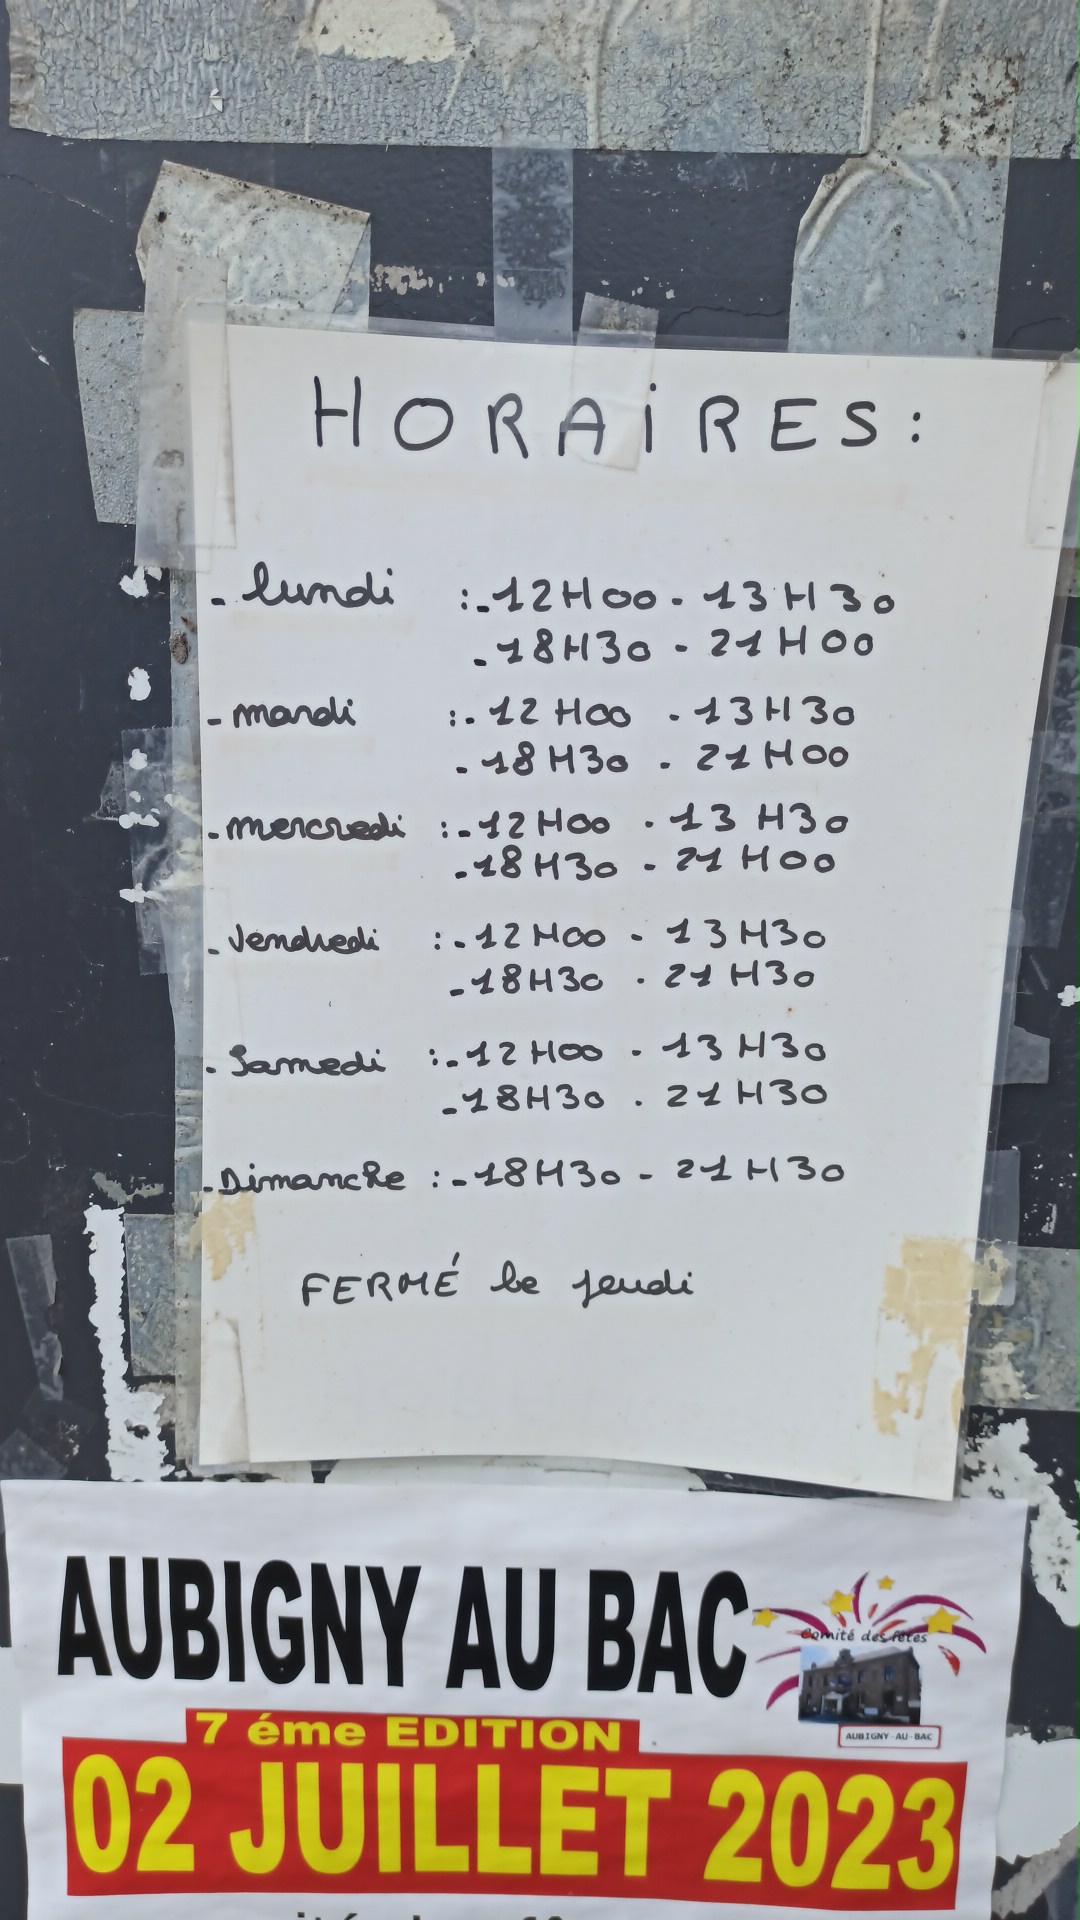 HORAiRES:
- lundi :-12H00 - 13H30
-18H30 - 21H00
- mardi :- 12H00 - 13H30
-18H30 - 21H00
- mercredi :-12H00 - 13H30
-18H30 - 21H00
- Vendredi :-12H00 - 13H30
-18H30 - 21H30
- Samedi :-12H00 - 13H30
-18H30 - 21H30
-Dimanche :-18H30 - 21H30
FERMÉ le jeudi
AUBIGNY AU BAC
Comité des fêtes
AUBIGNY-AU-BAC
7 éme EDITION
02 JUILLET 2023